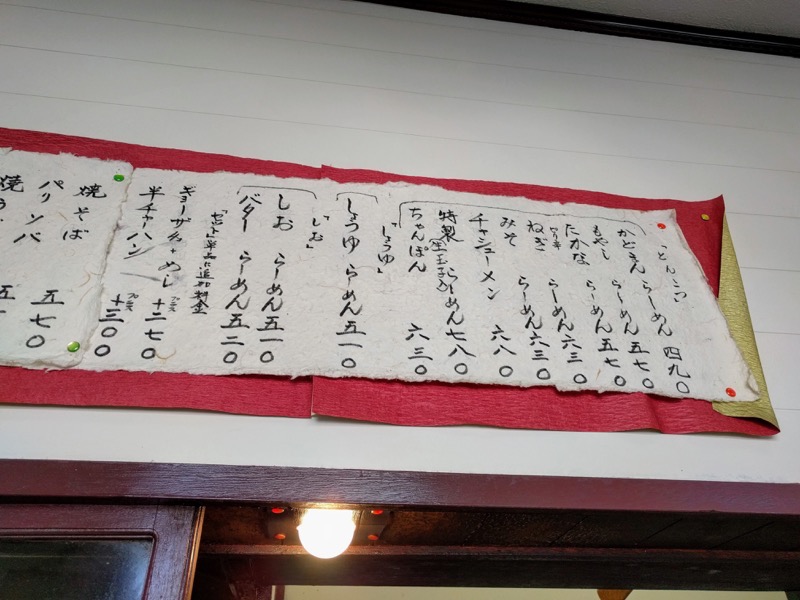 「とんこつ」
かどもん らーめん 四九〇
もやし らーめん 五七〇
たかな らーめん 五七〇
ピリ辛 ねぎ らーめん 六三〇
みそ らーめん 六三〇
チャシューメン 六八〇
特製(全玉子入) らーめん 七八〇
ちゃんぽん 六三〇
「しょうゆ」
しょうゆ らーめん 五一〇
「しお」
しお らーめん 五一〇
バター らーめん 五二〇
「セット」単品に追加料金
ギョーザ5ヶ+めし プラス +二七〇
半チャーハン プラス +三〇〇
焼そば 五七〇
パリンバ
焼う